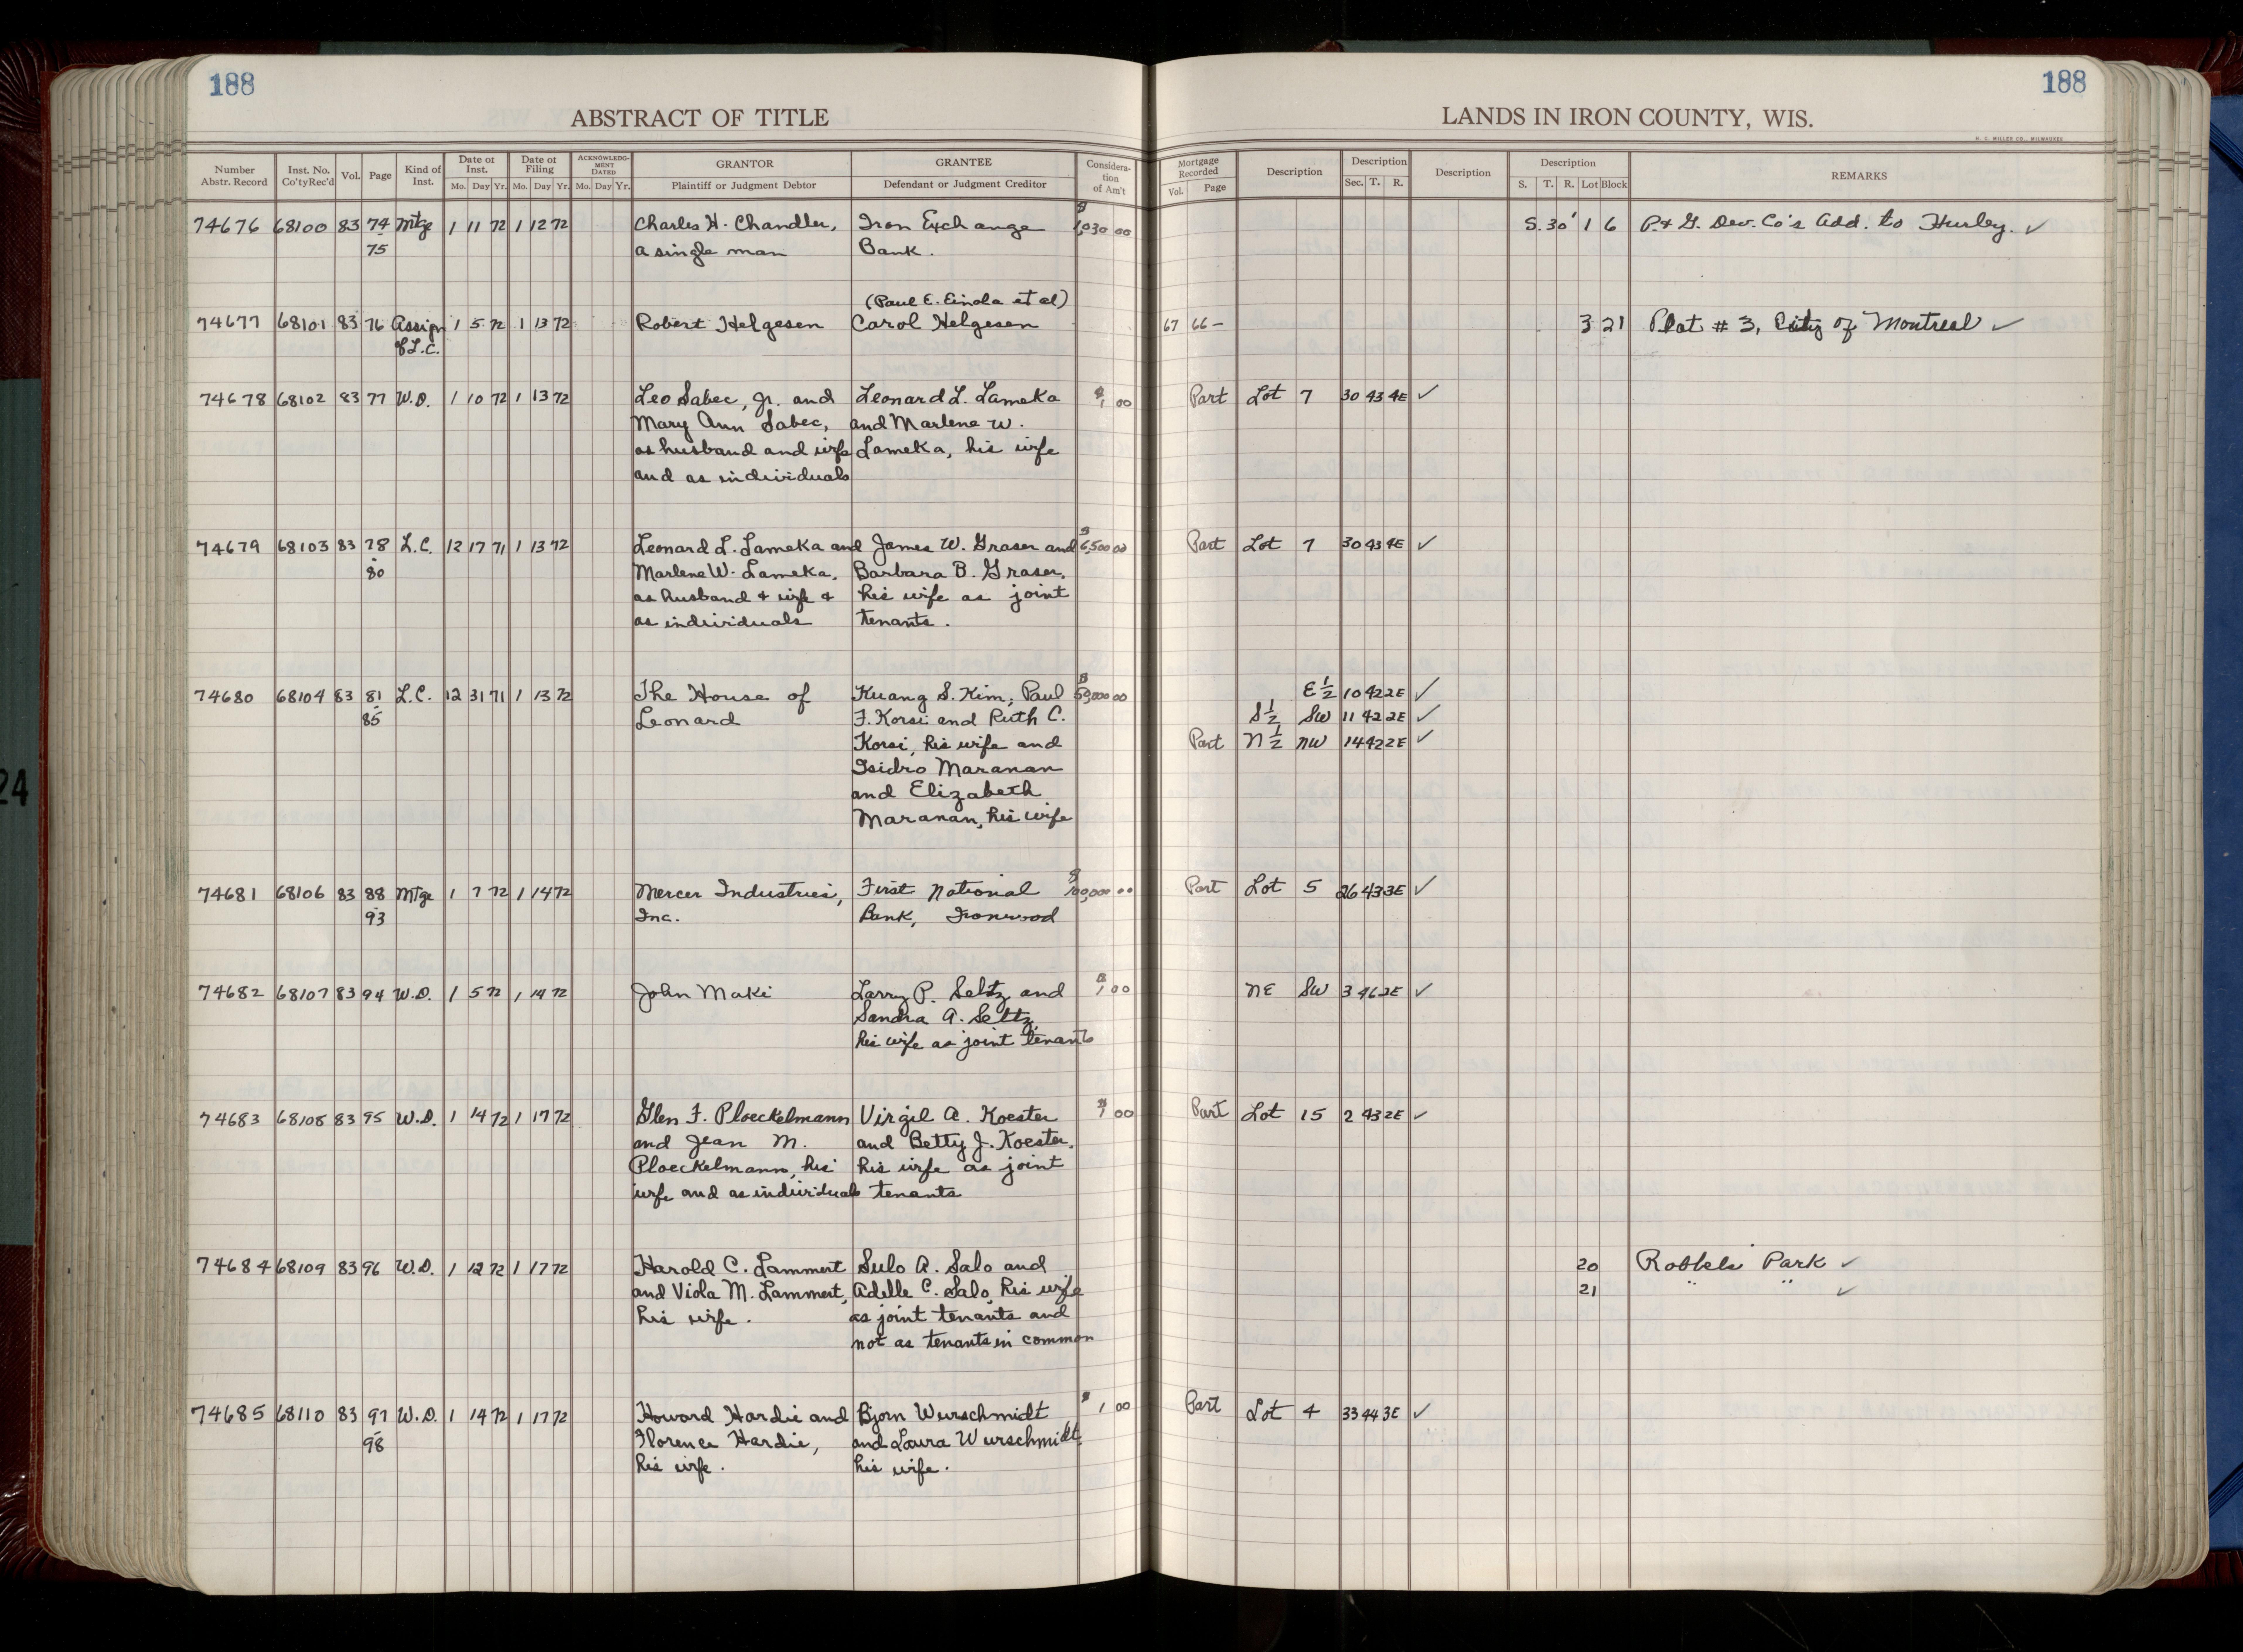 188
188
ABSTRACT OF TITLE
LANDS IN IRON COUNTY, WIS.
H. C. MILLER CO., MILWAUKEE
Number Abstr. Record Inst. No. Co'tyRec'd Vol. Page Kind of Inst. Date of Inst. Mo. Day Yr. Date of Filing Mo. Day Yr. ACKNOWLEDGMENT DATED Mo. Day Yr. GRANTOR Plaintiff or Judgment Debtor GRANTEE Defendant or Judgment Creditor Consideration of Am't Mortgage Recorded Vol. Page Description Description Sec. T. R. Description Description S. T. R. Lot Block REMARKS
74676 68100 83 74 Mtge 1 11 72 1 12 72 Charles H. Chandler, Iron Exchange $1,030 00 S.30' 1 6 P. & G. Dev. Co's Add. to Hurley. ✓
75 a single man Bank.
(Paul E. Einola et al)
74677 68101 83 76 Assign 1 5 72 1 13 72 Robert Helgesen Carol Helgesen 67 66 – 3 21 Plat # 3, City of Montreal ✓
of L.C.
74678 68102 83 77 W.D. 1 10 72 1 13 72 Leo Sabec, Jr. and Leonard L. Lameka $1 00 Part Lot 7 30 43 4E ✓
Mary Ann Sabec, and Marlene W.
as husband and wife Lameka, his wife
and as individuals
74679 68103 83 78 L.C. 12 17 71 1 13 72 Leonard L. Lameka and James W. Graser and $6,500 00 Part Lot 7 30 43 4E ✓
80 Marlene W. Lameka, Barbara B. Graser,
as husband & wife & his wife as joint
as individuals tenants.
74680 68104 83 81 L.C. 12 31 71 1 13 72 The House of Kuang S. Kim, Paul $50,000 00 E½ 10 42 2E ✓
85 Leonard F. Korsi and Ruth C. S½ SW 11 42 2E ✓
Korsi, his wife and Part N½ NW 14 42 2E ✓
Isidro Maranan
and Elizabeth
Maranan, his wife
74681 68106 83 88 Mtge 1 7 72 1 14 72 Mercer Industries, First National $100,000 00 Part Lot 5 26 43 3E ✓
93 Inc. Bank, Ironwood
74682 68107 83 94 W.D. 1 5 72 1 14 72 John Maki Larry P. Seltz and $1 00 NE SW 3 46 2E ✓
Sandra A. Seltz,
his wife as joint tenants
74683 68108 83 95 W.D. 1 14 72 1 17 72 Glen F. Ploeckelmann Virgil A. Koester $1 00 Part Lot 15 2 43 2E ✓
and Jean M. and Betty J. Koester,
Ploeckelmann, his his wife as joint
wife and as individuals tenants
74684 68109 83 96 W.D. 1 12 72 1 17 72 Harold C. Lammert Sulo A. Salo and 20 Park ✓
and Viola M. Lammert, Adelle C. Salo, his wife 21 " " ✓
his wife. as joint tenants and
not as tenants in common
74685 68110 83 97 W.D. 1 14 72 1 17 72 Howard Hardie and Bjorn Wurschmidt $1 00 Part Lot 4 33 44 3E ✓
98 Florence Hardie, and Laura Wurschmidt,
his wife. his wife.
24